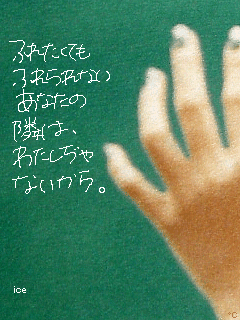 ふれたくても
ふれられない
あなたの
隣は、
わたしぢゃ
ないから。
ice
℃